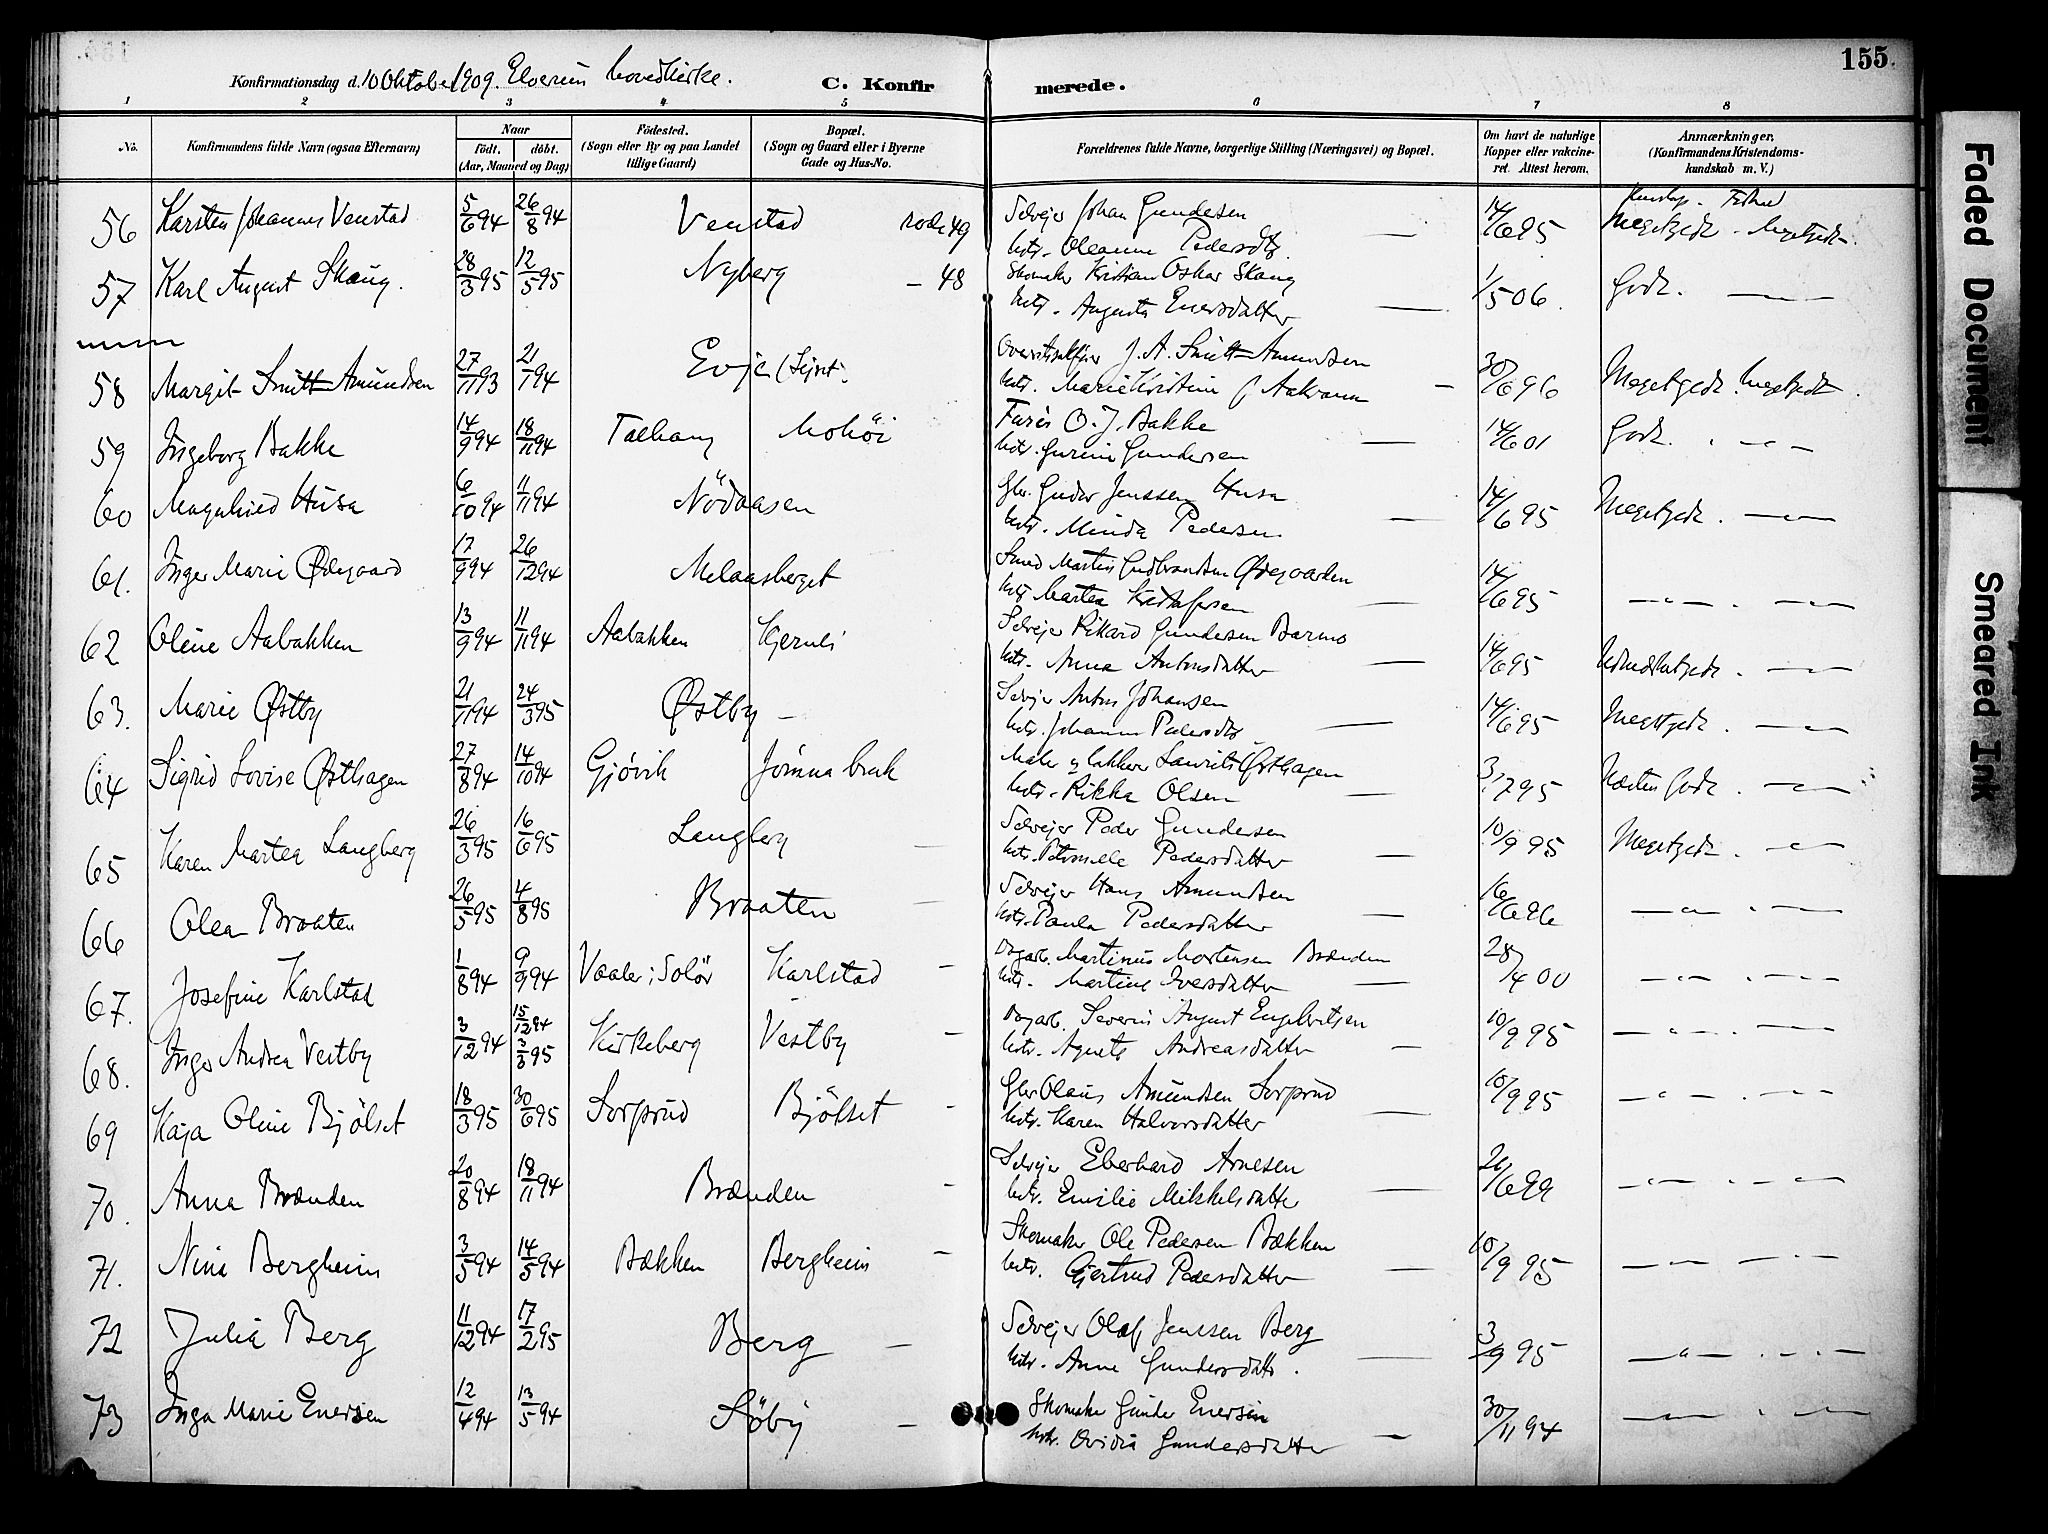 155.
Konfirmationsdag d. 10 Oktober 1909. Elverum hovedkirke. C. Konfirmerede.
1 2 3 4 5 6 7 8
No. Konfirmandens fulde Navn (ogsaa Efternavn) Naar født. døbt. (Aar, Maaned og Dag) Födested. (Sogn eller By og paa Landet tillige Gaard) Bopæl. (Sogn og Gaard eller i Byerne Gade og Hus-No. Forældrenes fulde Navne, borgerlige Stilling (Næringsvei) og Bopæl. Om havt de naturlige Kopper eller vaccineret. Attest herom. Anmærkninger. (Konfirmandens Kristendomskundskab m. V.)
56 Karsten Johannes Venstad 5/6 94 26/8 94 Venstad rode 49 Selvejer Johan Gundesen 14/6 95 Megetgodt. Megetgodt.
hstr. Oleanne Pedersdtr. —
57 Karl August Skaug. 28/3 95 12/5 95 Nyberg — 48 Skomaker Kristian Oskar Skaug 1/5 06. Godt. — " —
hstr. Augusta Enersdatter —
58 Margit Smitt-Amundsen 27/11 93 21/1 94 Evje J. A. Smitt-Amundsen 30/6 96 Megetgodt. Megetgodt.
hstr. Marie Kristine f. Aakrann —
59 Ingeborg Bakke 14/9 94 18/11 94 O. J. Bakke 14/6 01 Godt. . — " —
hstr. Gurine Gundersen —
60 Magnhied Husa 6/10 94 11/11 94 Nödaasen Gbr. Gudor Jenssen Husa 14/6 95 Megetgodt. — " —
hstr. Minda Pedersen —
61. Inger Marie Ødegaard 17/9 94 26/12 94 Melaasberget Smed Martin Gudbrandsen Ødegaarden 14/6 95 — " — . — " —
hstr Martea Kristofersen —
62 Oline Aabakken 13/9 94 11/11 94 Aabakken Hjernli Selvejer Rikard Gundersen Barmo 14/6 95 Udmerketgodt. — " —
hstr. Anna Antonsdatter —
63. Marie Østby 21/11 94 24/3 95 Østby — Selvejer Anton Johansen 14/6 95 Megetgodt. — " —
hstr. Johanne Pedersdtr. —
64 Sigrid Lovise Østhagen 27/8 94 14/10 94 Gjøvik Jömna bruk Maler og lakkerer Laurits Østhagen 3/7 95 Næsten Godt. — " —
hstr. Rikka Olsen —
65 Karen Martea Langberg 26/3 95 16/6 95 Langberg — Selvejer Peder Gundersen 10/9 95 Megetgodt. — " —
hstr. Petronelle Pedersdatter —
66 Olea Braaten 26/5 95 4/8 95 Braaten — Selvejer Hans Amundsen 16/6 96 — " — . — " —
hstr. Paula Pedersdatter —
67. Josefine Karlstad 1/8 94 9/9 94 Vaaler i Solör Karlstad — Dagarb. Martinus Mortensen Brænden 28/4 00 — " — . — " —
hstr. Martine Iversdatter —
68. Inga Andrea Vestby 3/12 94 15/12 94 3/3 95 Kirkeberg Vestby — Dagarb. Severin August Engebretsen 10/9 95 — " — . — " —
hstr. Agnete Andreasdatter —
69 Kaja Oline Bjölset 18/3 95 30/6 95 Sorprud Bjölset — Gbr Olaus Amundsen Sorprud 10/9 95 — " — . — " —
hstr. Karen Halvorsdatter —
70. Anna Brænden 20/8 94 18/11 94 Brænden — Selvejer Eberhard Arnesen 21/6 99 — " — . — " —
hstr. Emilie Mikkelsdatter —
71. Nina Bergheim 3/5 94 14/5 94 Bækken Bergheim — Skomaker Ole Pedersen Bækken 10/9 95 — " — . —
hstr. Gjertrud Pedersdatter —
72 Julia Berg 11/12 94 17/2 95 Berg — Selvejer Olaf Jenssen Berg 3/9 95 — " — . — " —
hstr. Anne Gundersdatter. —
73 Inga Marie Enersen 12/4 94 13/5 94 Söby — Skomaker Gunder Enersen 30/11 94 — " — . — " —
hstr. Ovidia Gundersdatter —
Faded Document
Smeared Ink